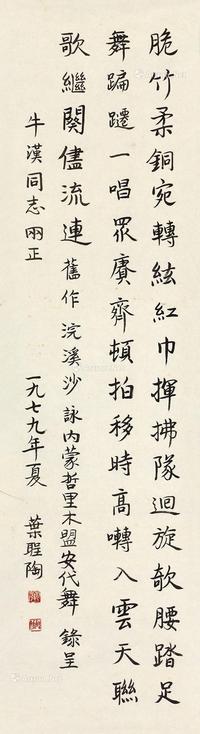 脆竹柔銅宛轉絃紅巾揮拂隊迴旋欹腰踏足
舞蹁蹮一唱眾賡齊頓拍移時高囀入雲天聯
歌繼闋儘流連舊作浣溪沙詠內蒙哲里木盟安代舞錄呈
牛漢同志兩正
一九七九年夏 葉聖陶